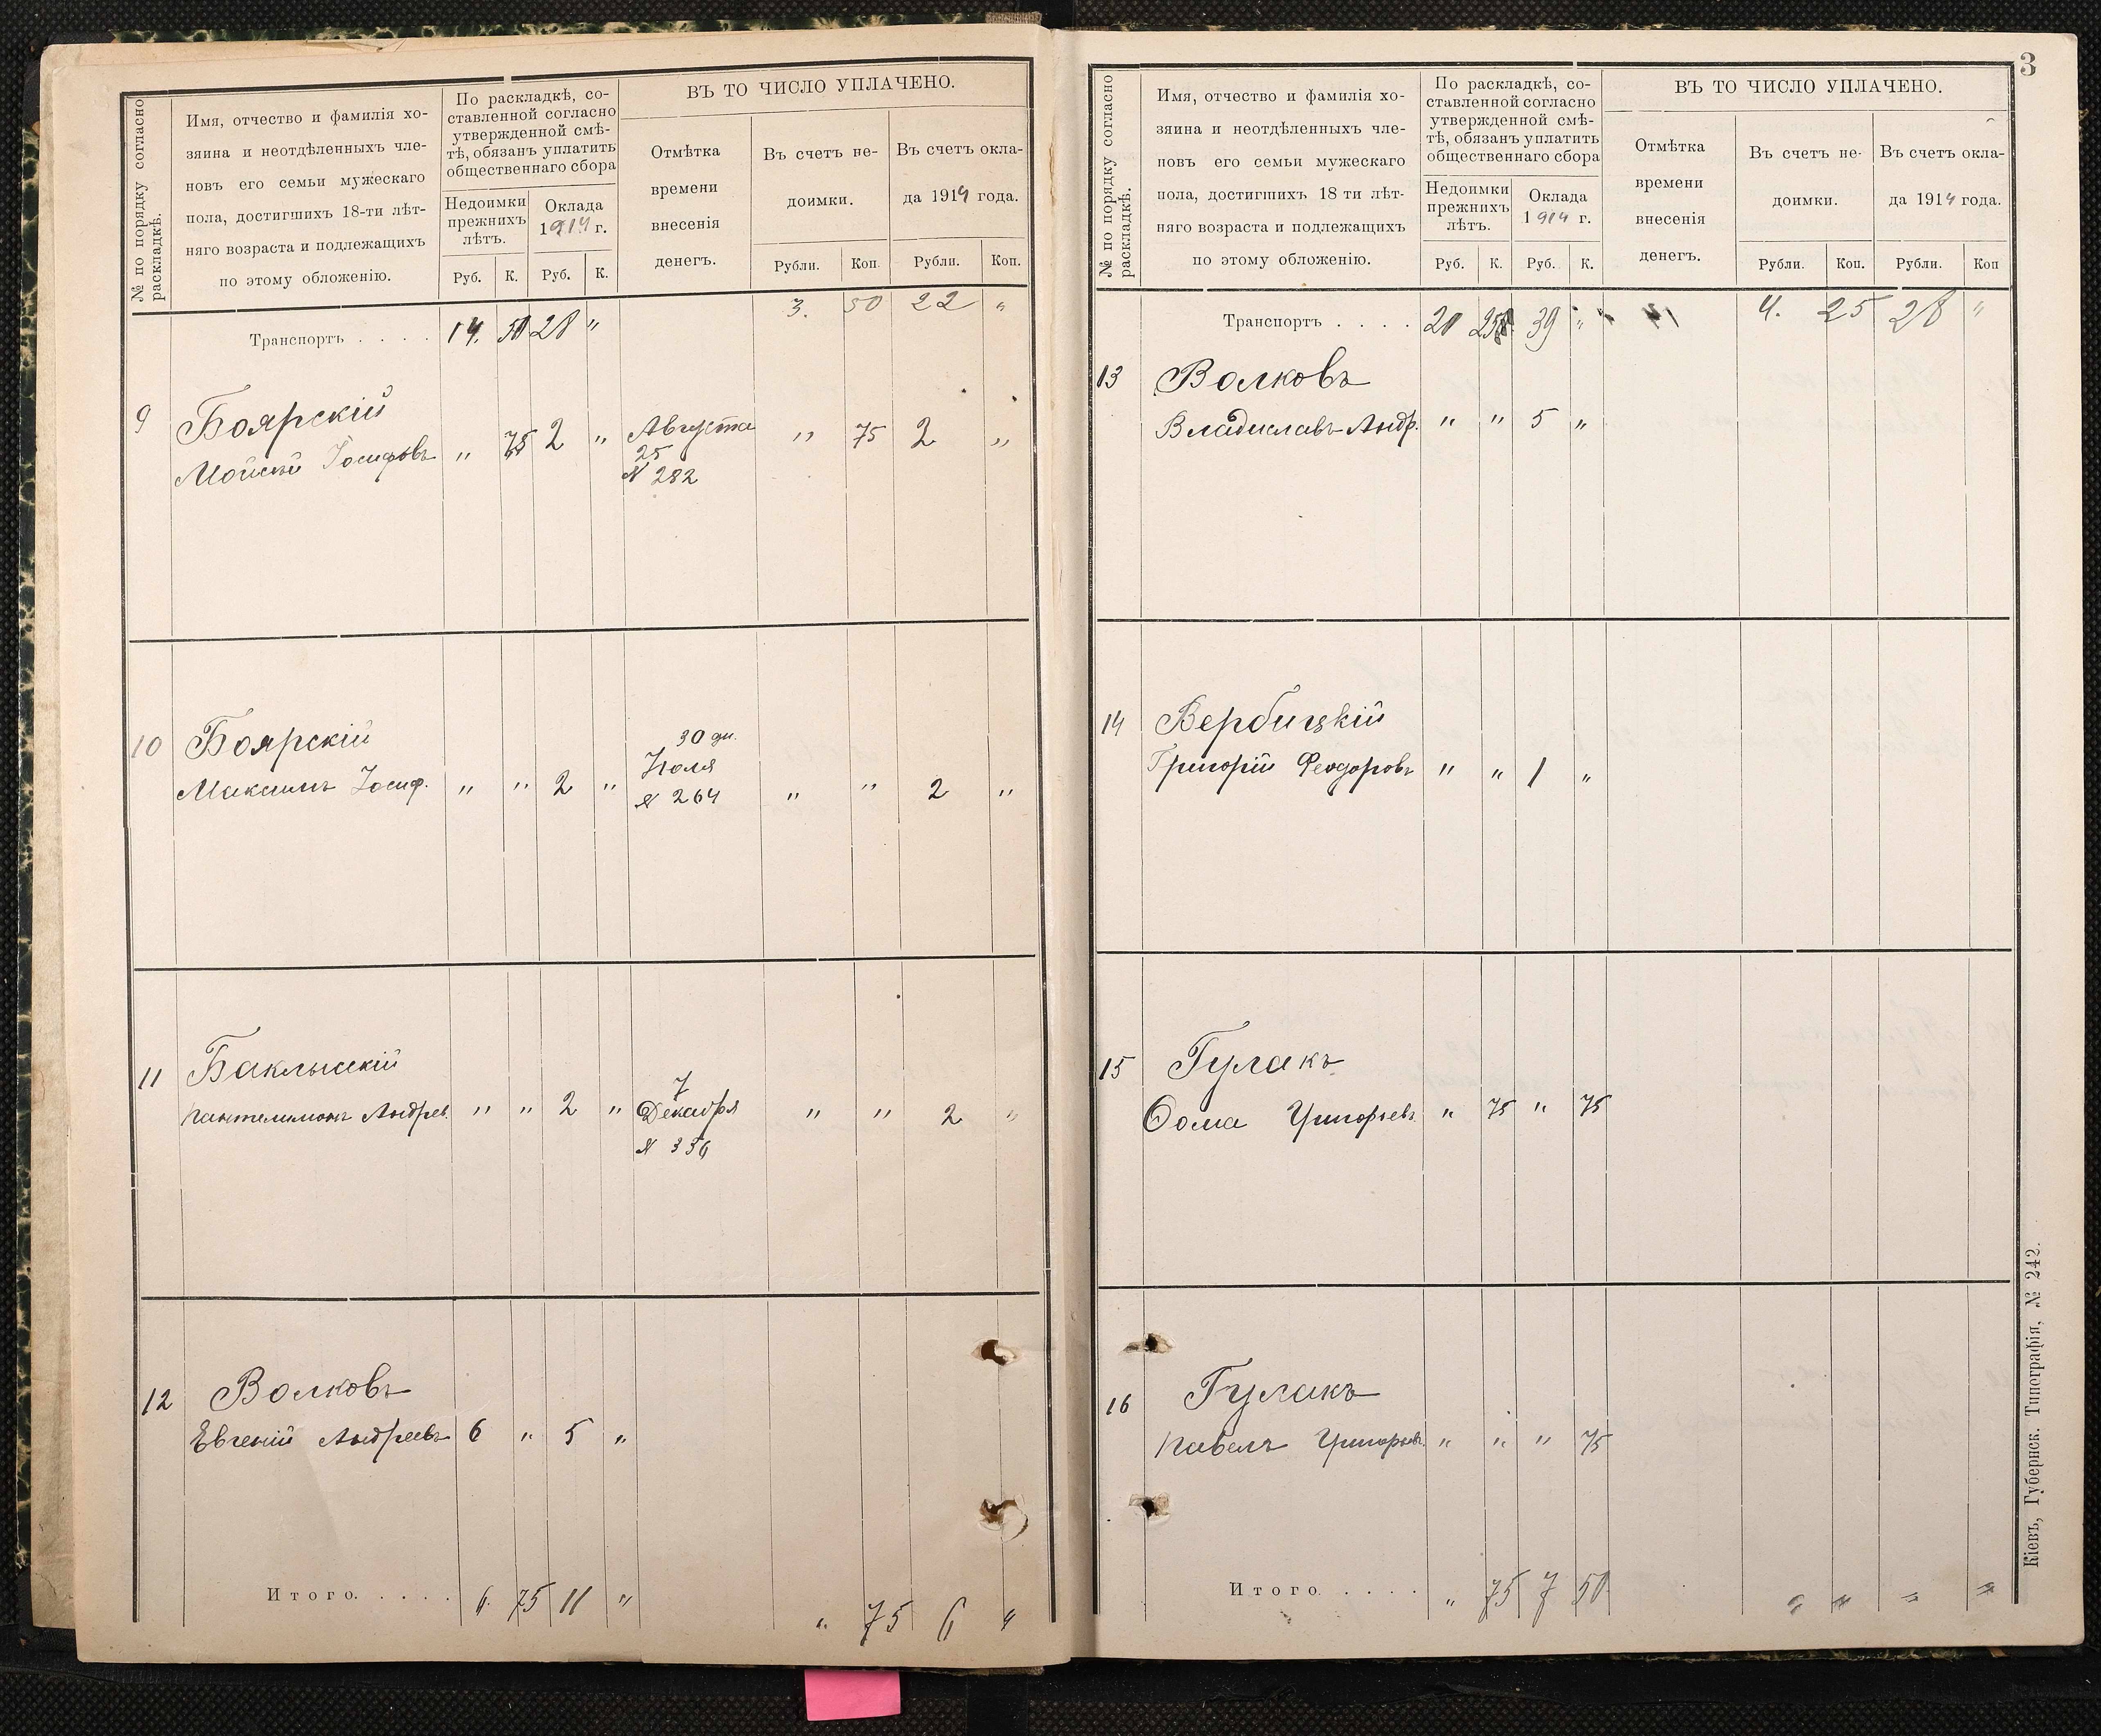 № по порядку согласно
раскладкѣ.
Имя, отчество и фамилія хо-
зяина и неотдѣленныхъ чле-
новъ его семьи мужескаго
пола, достигшихъ 18-ти лѣт-
няго возраста и подлежащихъ
по этому обложенію.
По раскладкѣ, со-
ставленной согласно
утвержденной смѣ-
тѣ, обязанъ уплатить
общественнаго сбора
Недоимки
прежнихъ
лѣтъ.
Оклада
1914 г.
Руб. К. Руб. К.
ВЪ ТО ЧИСЛО УПЛАЧЕНО.
Отмѣтка
времени
внесенія
денегъ.
Въ счетъ не-
доимки.
Въ счетъ окла-
да 1914 года.
Рубли. Коп. Рубли. Коп.
Транспортъ . . . . 14. 50 28 " 3. 50 22 "
9 Боярскій
Мойсей Іосифовъ " 75 2 " Августа " 75 2 "
25
№ 282
10 Боярскій
30 дн.
Іюля
Максимъ Іосиф. " " 2 " № 264 " " 2 "
11 Баклысскій
7
Пантелимонъ Андреев. " " 2 " Декабря " " 2 "
№ 336
12 Волковъ
Евгеній Андреевъ 6 " 5 "
Итого. . . . . 6. 75 11 " " 75 6 "
3
№ по порядку согласно
раскладкѣ.
Имя, отчество и фамилія хо-
зяина и неотдѣленныхъ чле-
новъ его семьи мужескаго
пола, достигшихъ 18 ти лѣт-
няго возраста и подлежащихъ
по этому обложенію.
По раскладкѣ, со-
ставленной согласно
утвержденной смѣ-
тѣ, обязанъ уплатить
общественнаго сбора
Недоимки
прежнихъ
лѣтъ.
Оклада
1914 г.
Руб. К. Руб. К.
ВЪ ТО ЧИСЛО УПЛАЧЕНО.
Отмѣтка
времени
внесенія
денегъ.
Въ счетъ не-
доимки.
Въ счетъ окла-
да 1914 года.
Рубли. Коп. Рубли. Коп
Транспортъ . . . . 21 25 39 " 4. 25 28 "
13 Волковъ
Владиславъ Андр. " " 5 "
14 Вербицкій
Григорій Феодоровъ " " 1 "
15 Гулакъ
Ѳома Григорьевъ " 75 " 75
16 Гулакъ
Павелъ Григорьев. " " " 75
Итого. . . . . " 75 7 50 " " " "
Кіевъ, Губернск. Типографія, № 242.